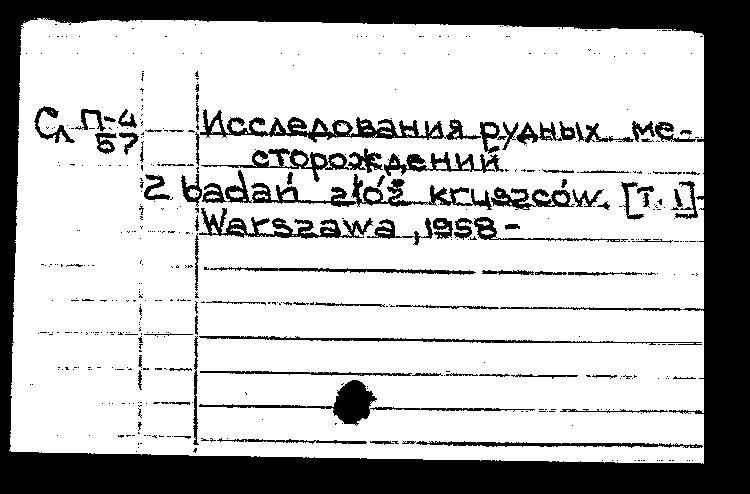 Сл П-4
57
Исследования рудных ме-
сторождений
Z badań złóż kruszców. [T. 1]-
Warszawa, 1958-